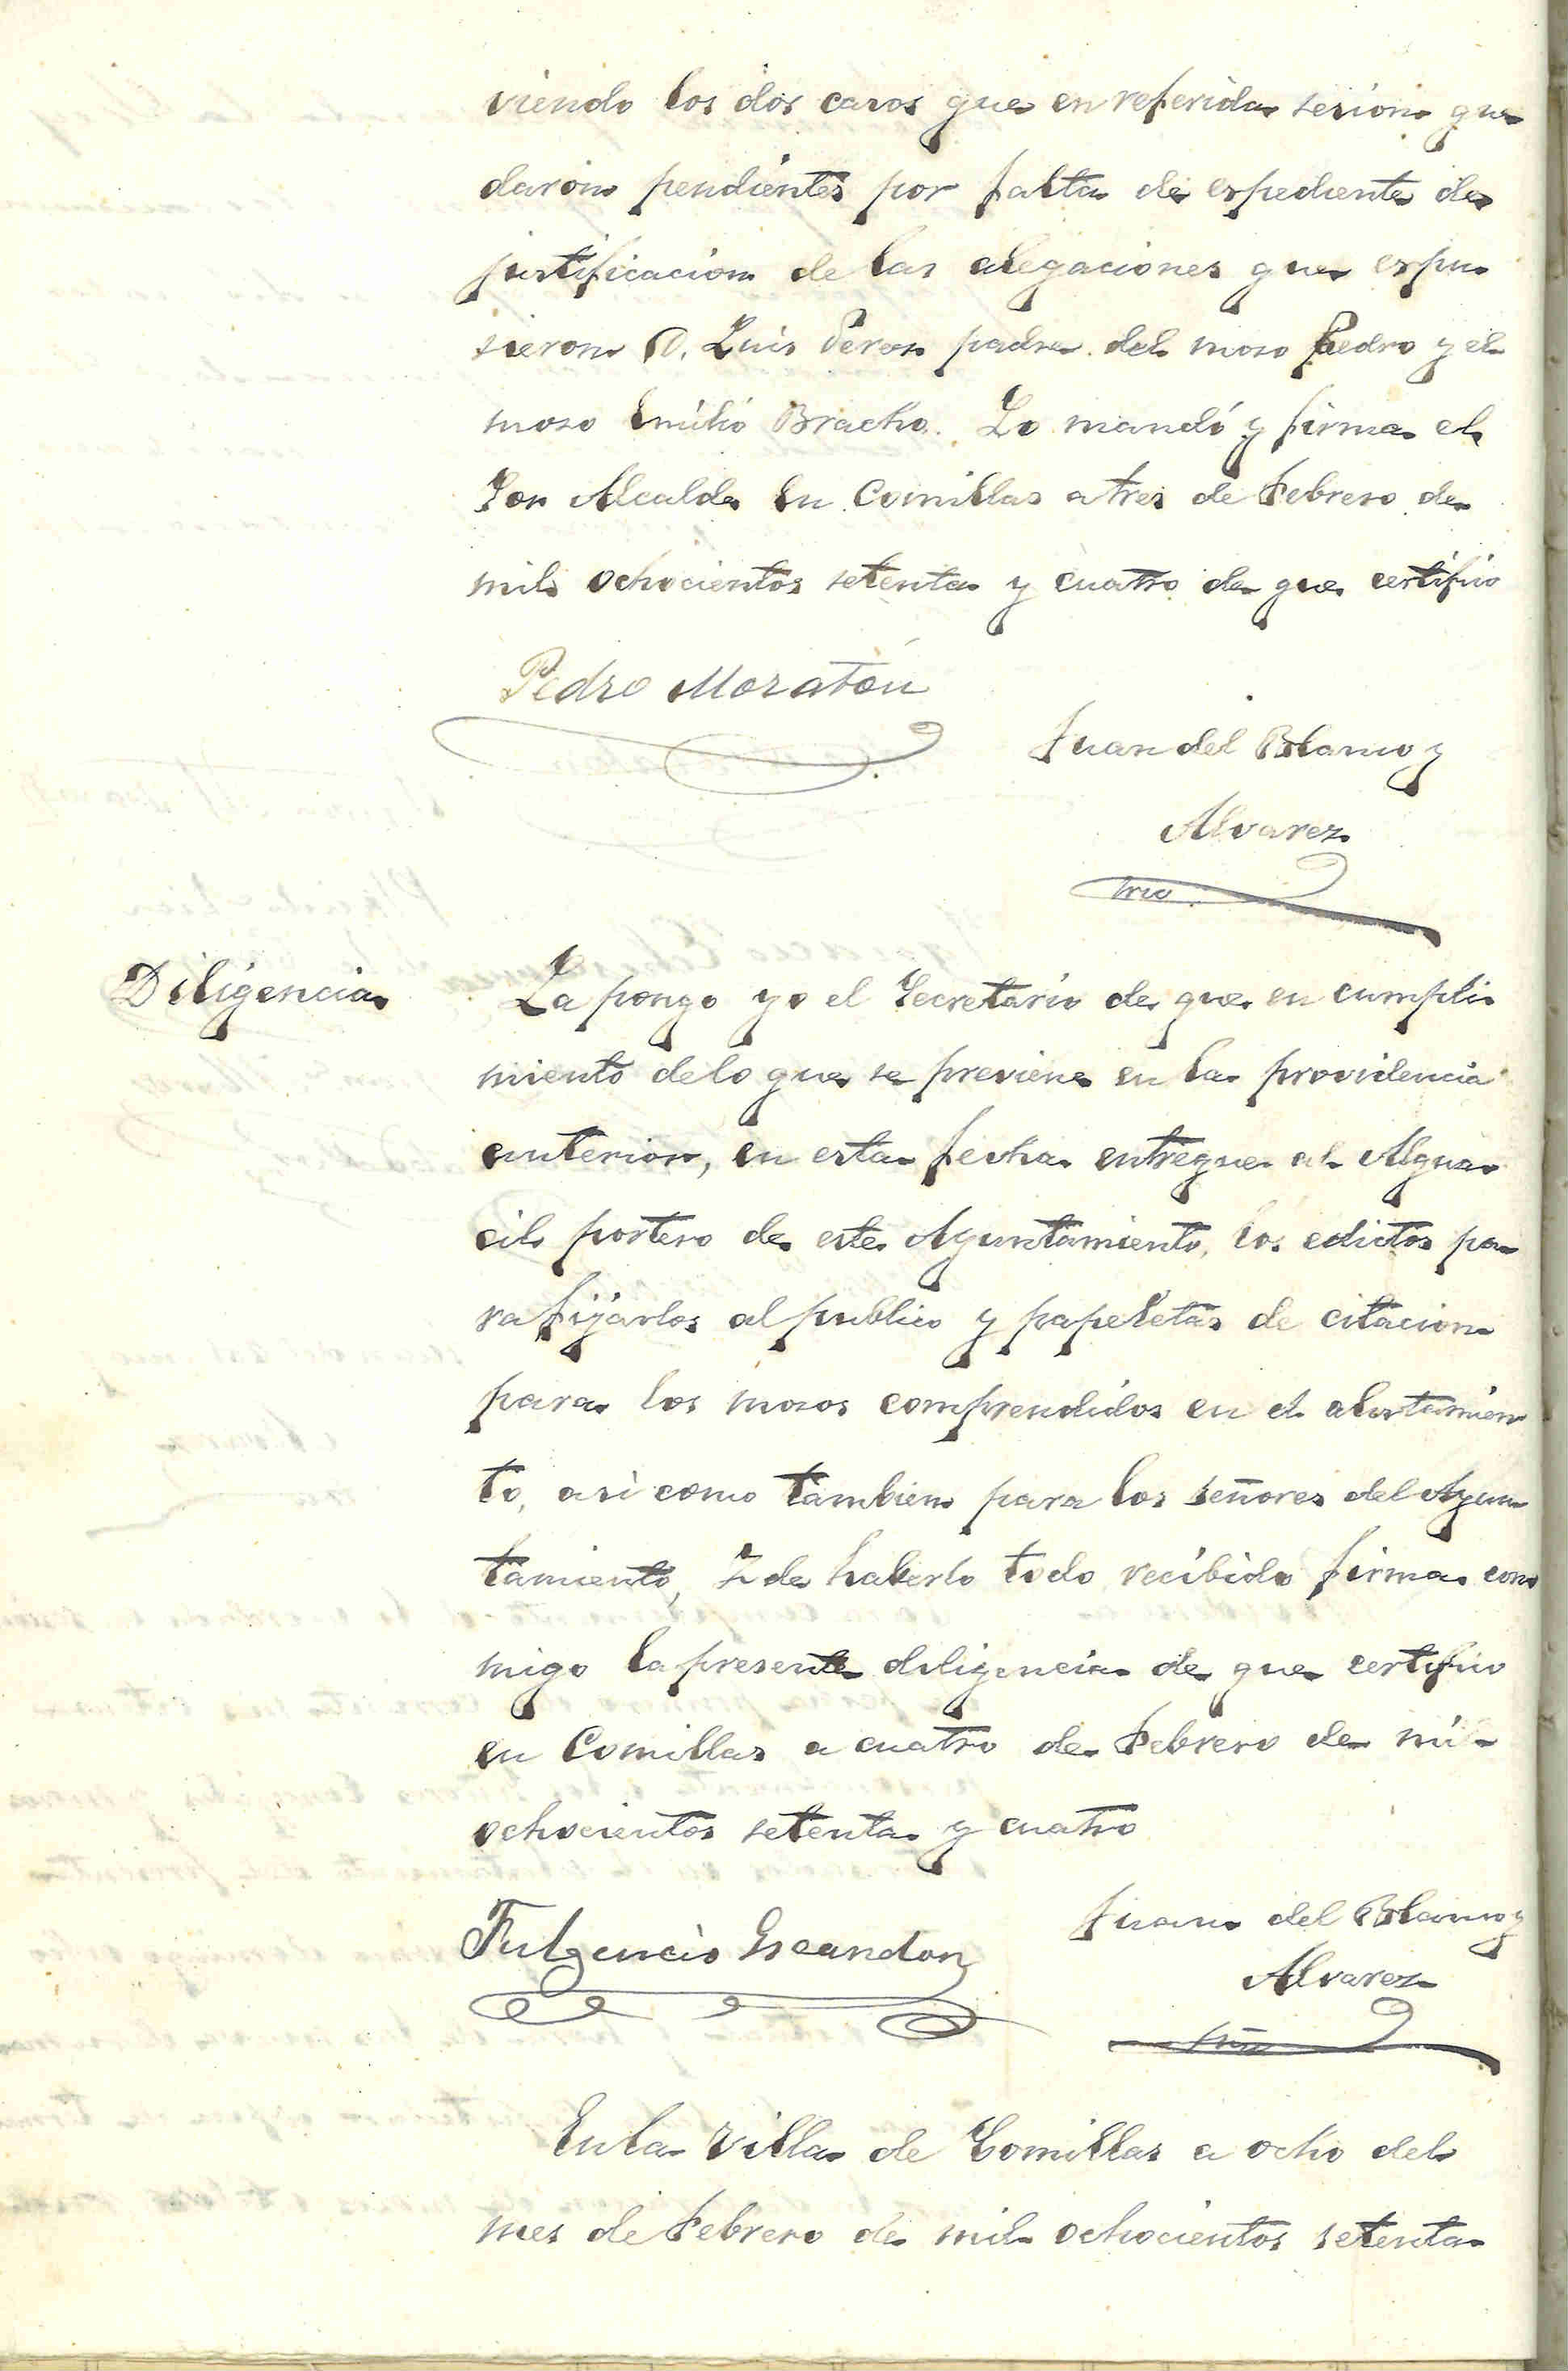 viendo los dos casos que en referida sesion que
daron pendientes por falta de espediente de
justificacion de las alegaciones que espu
sieron D. Luis Peron padre del moso Pedro y el
moso Emilio Bracho. Lo mandó y firma el
Sor Alcalde En Comillas a tres de Febrero de
mil ochocientos setenta y cuatro de que certifico
Pedro Moratón
Juan del Blanco y
Alvarez
Srio
Diligencia
La pongo yo el Secretario de que en cumpli
miento de lo que se previene en la providencia
anterior, en esta fecha entregue al Algua
cil portero de este Ayuntamiento, los edictos pa
ra fijarlos al publico y papeletas de citacion
para los mosos comprendidos en el alistamien
to, asi como tambien para los señores del Ayun
tamiento, Y de haberlo todo recibido firma con
migo la presente diligencia de que certifico
en Comillas a cuatro de Febrero de mil
ochocientos setenta y cuatro
Fulgencio Escandon
Juan del Blanco y
Alvarez
Srio
En la Villa de Comillas a ocho del
mes de Febrero de mil ochocientos setenta